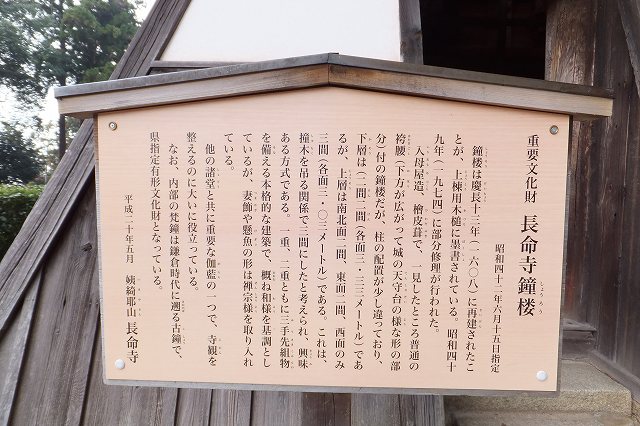 重要文化財 長命寺鐘楼
しょうろう
昭和四十二年六月十五日指定
鐘楼は慶長十三年(一六〇八)に再建されたこ
とが、上棟用木槌に墨書されている。昭和四十
九年(一九七四)に部分修理が行われた。
入母屋造、檜皮葺で、一見したところ普通の
袴腰(下方が広がって城の天守台の様な形の部
分)付の鐘楼だが、柱の配置が少し違っており、
下層は(二間二間(各面三・三三メートル)であ
るが、上層は南北面二間、東面二間、西面のみ
三間(各面三・〇三メートル)である。これは、
撞木を吊る関係で三間にしたと考えられ、興味
ある方式である。一重、二重ともに三手先組物
を備える本格的な建築で、概ね和様を基調とし
ているが、妻飾や懸魚の形は禅宗様を取り入れ
ている。
他の諸堂と共に重要な伽藍の一つで、寺観を
整えるのに大いに役立っている。
なお、内部の梵鐘は鎌倉時代に遡る古鐘で、
県指定有形文化財となっている。
平成二十年五月 姨綺耶山 長命寺